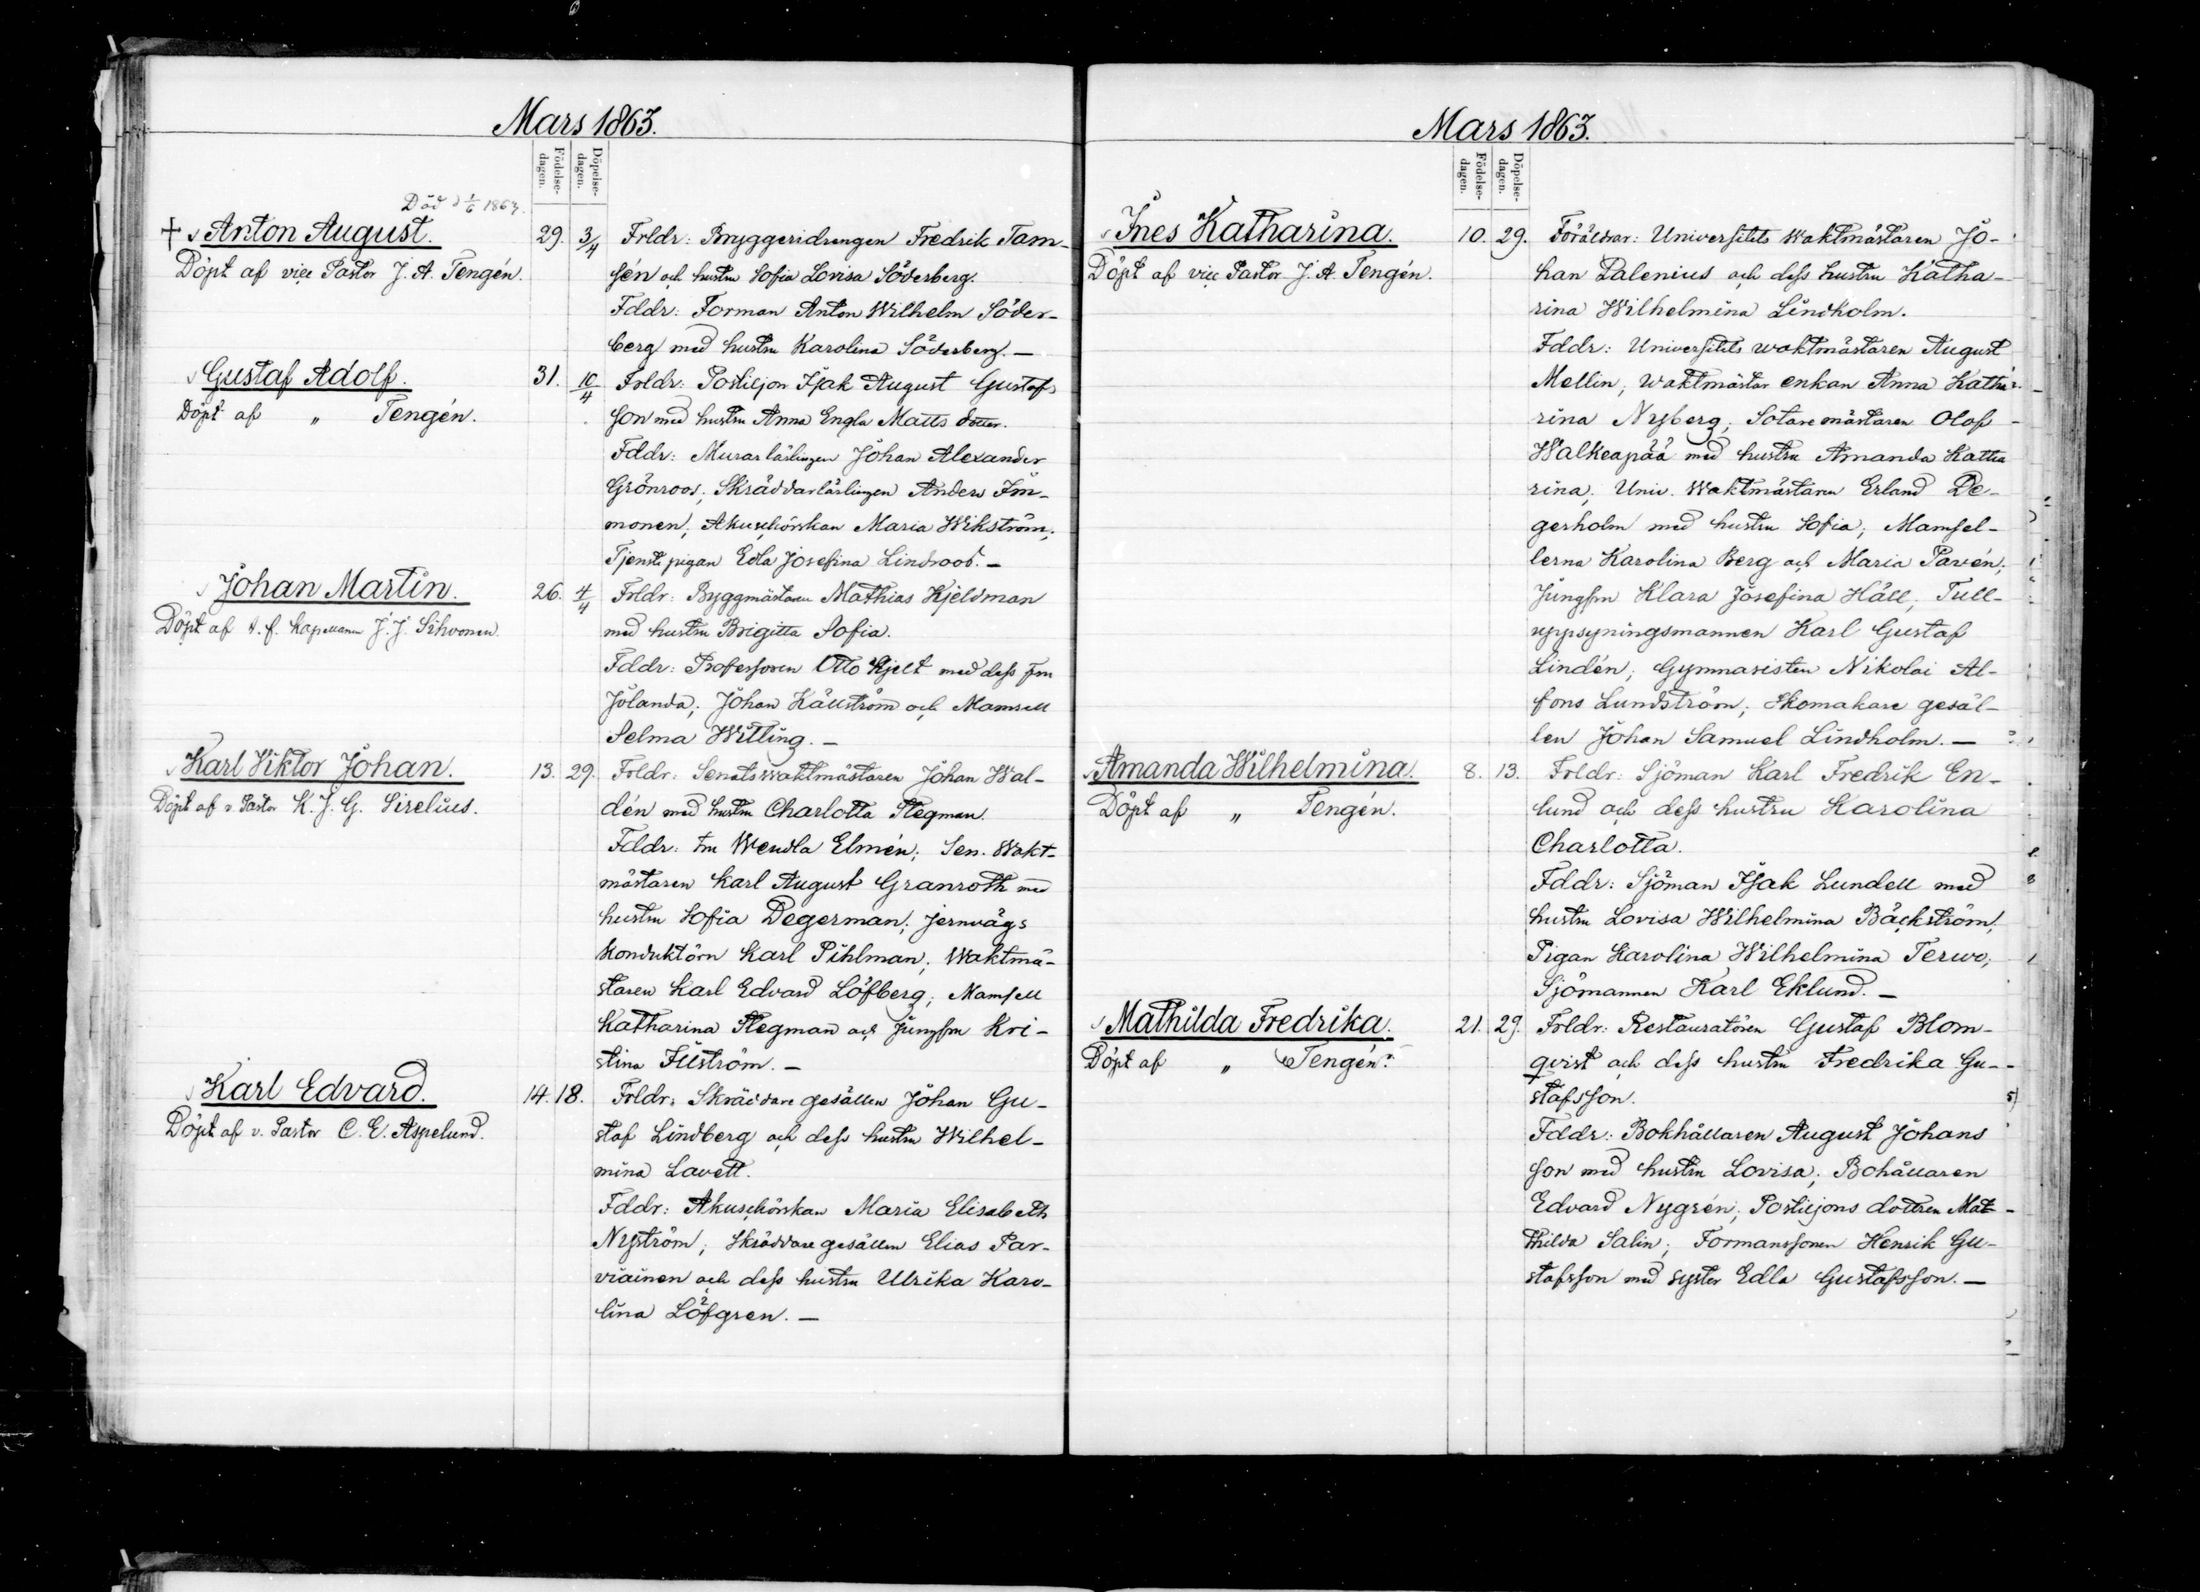 Mars 1863.
Födelse-
dagen.
Döpelse-
dagen.
Död d 1/6 1863.
† Anton August.
Döpt af vice Pastor J. A. Tengén.
29. 3/4
Frldr: Bryggeridrengen Fredrik Tam-
sén och hustru Sofia Lovisa Söderberg.
Fddr: Forman Anton Wilhelm Söder-
berg med hustru Karolina Söderberg. —
Gustaf Adolf.
Döpt af „ Tengén.
31. 10/4
Frldr: Postiljon Isak August Gustafs
son med hustru Anna Engla Matts dotter.
Fddr: Murarlärlingen Johan Alexander
Grönroos; Skräddarlärlingen Anders Im-
monen; Akuschörskan Maria Wikström;
Tjenstepigan Edla Josefina Lindroos. —
Johan Martin.
Döpt af t. f. kapellanen J. J. Sihvonen.
26. 4/4
Frldr: Byggmästaren Mathias Kjeldman
med hustru Brigitta Sofia.
Fddr: Professoren Otto Hjelt med dess fru
Jolanda; Johan Källström och Mamsell
Selma Witting. —
Karl Viktor Johan.
Döpt af v. Pastor K. J. G. Sirelius.
13. 29.
Frldr: Senatswaktmästaren Johan Wal-
dén med hustru Charlotta Stegman.
Fddr: fru Wendla Elmén; Sen. Wakt-
mästaren Karl August Granroth med
hustru Sofia Degerman; Jernvägs
konduktörn Karl Pihlman; Waktmä-
staren Karl Edvard Löfberg; Mamsell
Katharina Stegman och Jungfrun Kri-
stina Filström. —
Karl Edvard.
Döpt af v. Pastor C. E. Aspelund.
14. 18.
Frldr: Skräddare gesällen Johan Gu-
staf Lindberg och dess hustru Wilhel-
mina Lavett.
Fddr: Akuschörskan Maria Elisabeth
Nyström; Skräddare gesällen Elias Par-
viainen och dess hustru Ulrika Karo-
lina Löfgren. —
Mars 1863.
Födelse-
dagen.
Döpelse-
dagen.
Ines Katharina.
Döpt af vice Pastor J. A. Tengén.
10. 29.
Föräldrar: Universitets Waktmästaren Jo-
han Dalenius och dess hustru Katha-
rina Wilhelmina Lindholm.
Fddr: Universitets waktmästaren August
Mellin; waktmästar enkan Anna Katha-
rina Nyberg; Sotare mästaren Olof
Walkeapää med hustru Amanda Katha
rina; Univ. Waktmästaren Erland De-
gerholm med hustru Sofia; Mamsel-
lerna Karolina Berg och Maria Pavén;
Jungfrun Klara Josefina Häll; Tull-
uppsyningsmannen Karl Gustaf
Lindén; Gymnasisten Nikolai Al-
fons Lundström; Skomakare gesäl-
len Johan Samuel Lindholm. —
Amanda Wilhelmina.
Döpt af „ Tengén.
8. 13.
Frldr: Sjöman Karl Fredrik En-
lund och dess hustru Karolina
Charlotta.
Fddr: Sjöman Isak Lundell med
hustru Lovisa Wilhelmina Bäckström;
Pigan Karolina Wilhelmina Terwo;
Sjömannen Karl Eklund. —
Mathilda Fredrika.
Döpt af „ Tengén.
21. 29.
Frldr: Restauratören Gustaf Blom-
qvist och dess hustru Fredrika Gu-
stafsson.
Fddr: Bokhållaren August Johans
son med hustru Lovisa; Bohållaren
Edvard Nygrén; Postiljons dottren Mat-
thilda Salin; Formanssonen Henrik Gu-
stafsson med syster Edla Gustafsson. —